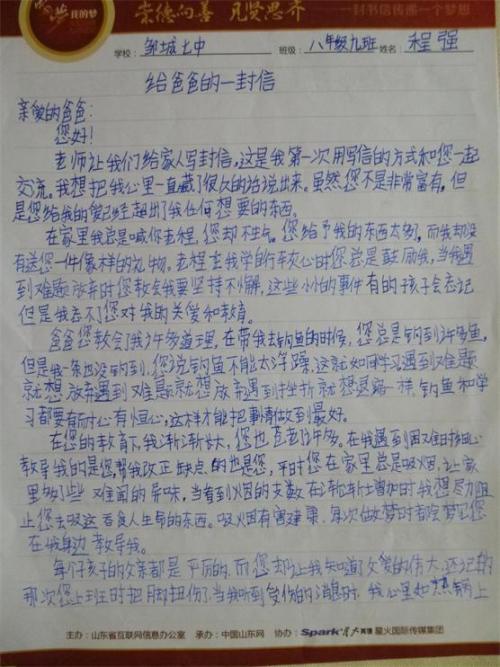 我的梦 崇德向善 见贤思齐 一封书信传递一个梦想
学校：邹城七中 班级：八年级九班 姓名：程强
给爸爸的一封信
亲爱的爸爸：
您好！
老师让我们给家人写封信，这是我第一次用写信的方式和您一起
交流。我想把我心里一直藏了很久的话说出来。虽然您不是非常富有，但
是您给我的爱已经超出了我任何想要的东西。
在家里我总是喊你老程，您却不生气。您给予我的东西太多，而我却没
有送您一件像样的礼物。老程在我学自行车灰心时您总是鼓励我，当我遇
到难题放弃时您教会我要坚持不懈，这些小小的事件有的孩子会忘记
但是我忘不了您对我的关爱和教育。
爸爸您教会了我许多道理，在带我去钓鱼的时候，您总是钓到许多鱼，
但是我一条也没钓到，您说钓鱼不能太浮躁，这就如同学习遇到难题
就想放弃遇到难题就想放弃遇到挫折就想退缩一样，钓鱼和学
习都要有耐心有恒心，这样才能把事情做到最好。
在您的教育下我渐渐长大，您也变老许多。在我遇到困难时细心
教导我的是您，帮我改正缺点的也是您，平时您在家里总是吸烟，让家
里多了些难闻的异味，当看到烟的支数在渐渐增加时我想尽力阻
止您去吸这吞食人生命的东西。吸烟有害健康，每次做梦时都会梦见您
在我身边教导我。
每个孩子的父亲都是严厉的，而您却让我知道了父爱的伟大，还记得
那次您上班时把脚扭伤了当我听到受伤的消息时，我心里如热锅上
主办：山东省互联网信息办公室 承办：中国山东网 协办：Spark 星火英语 星火国际传媒集团